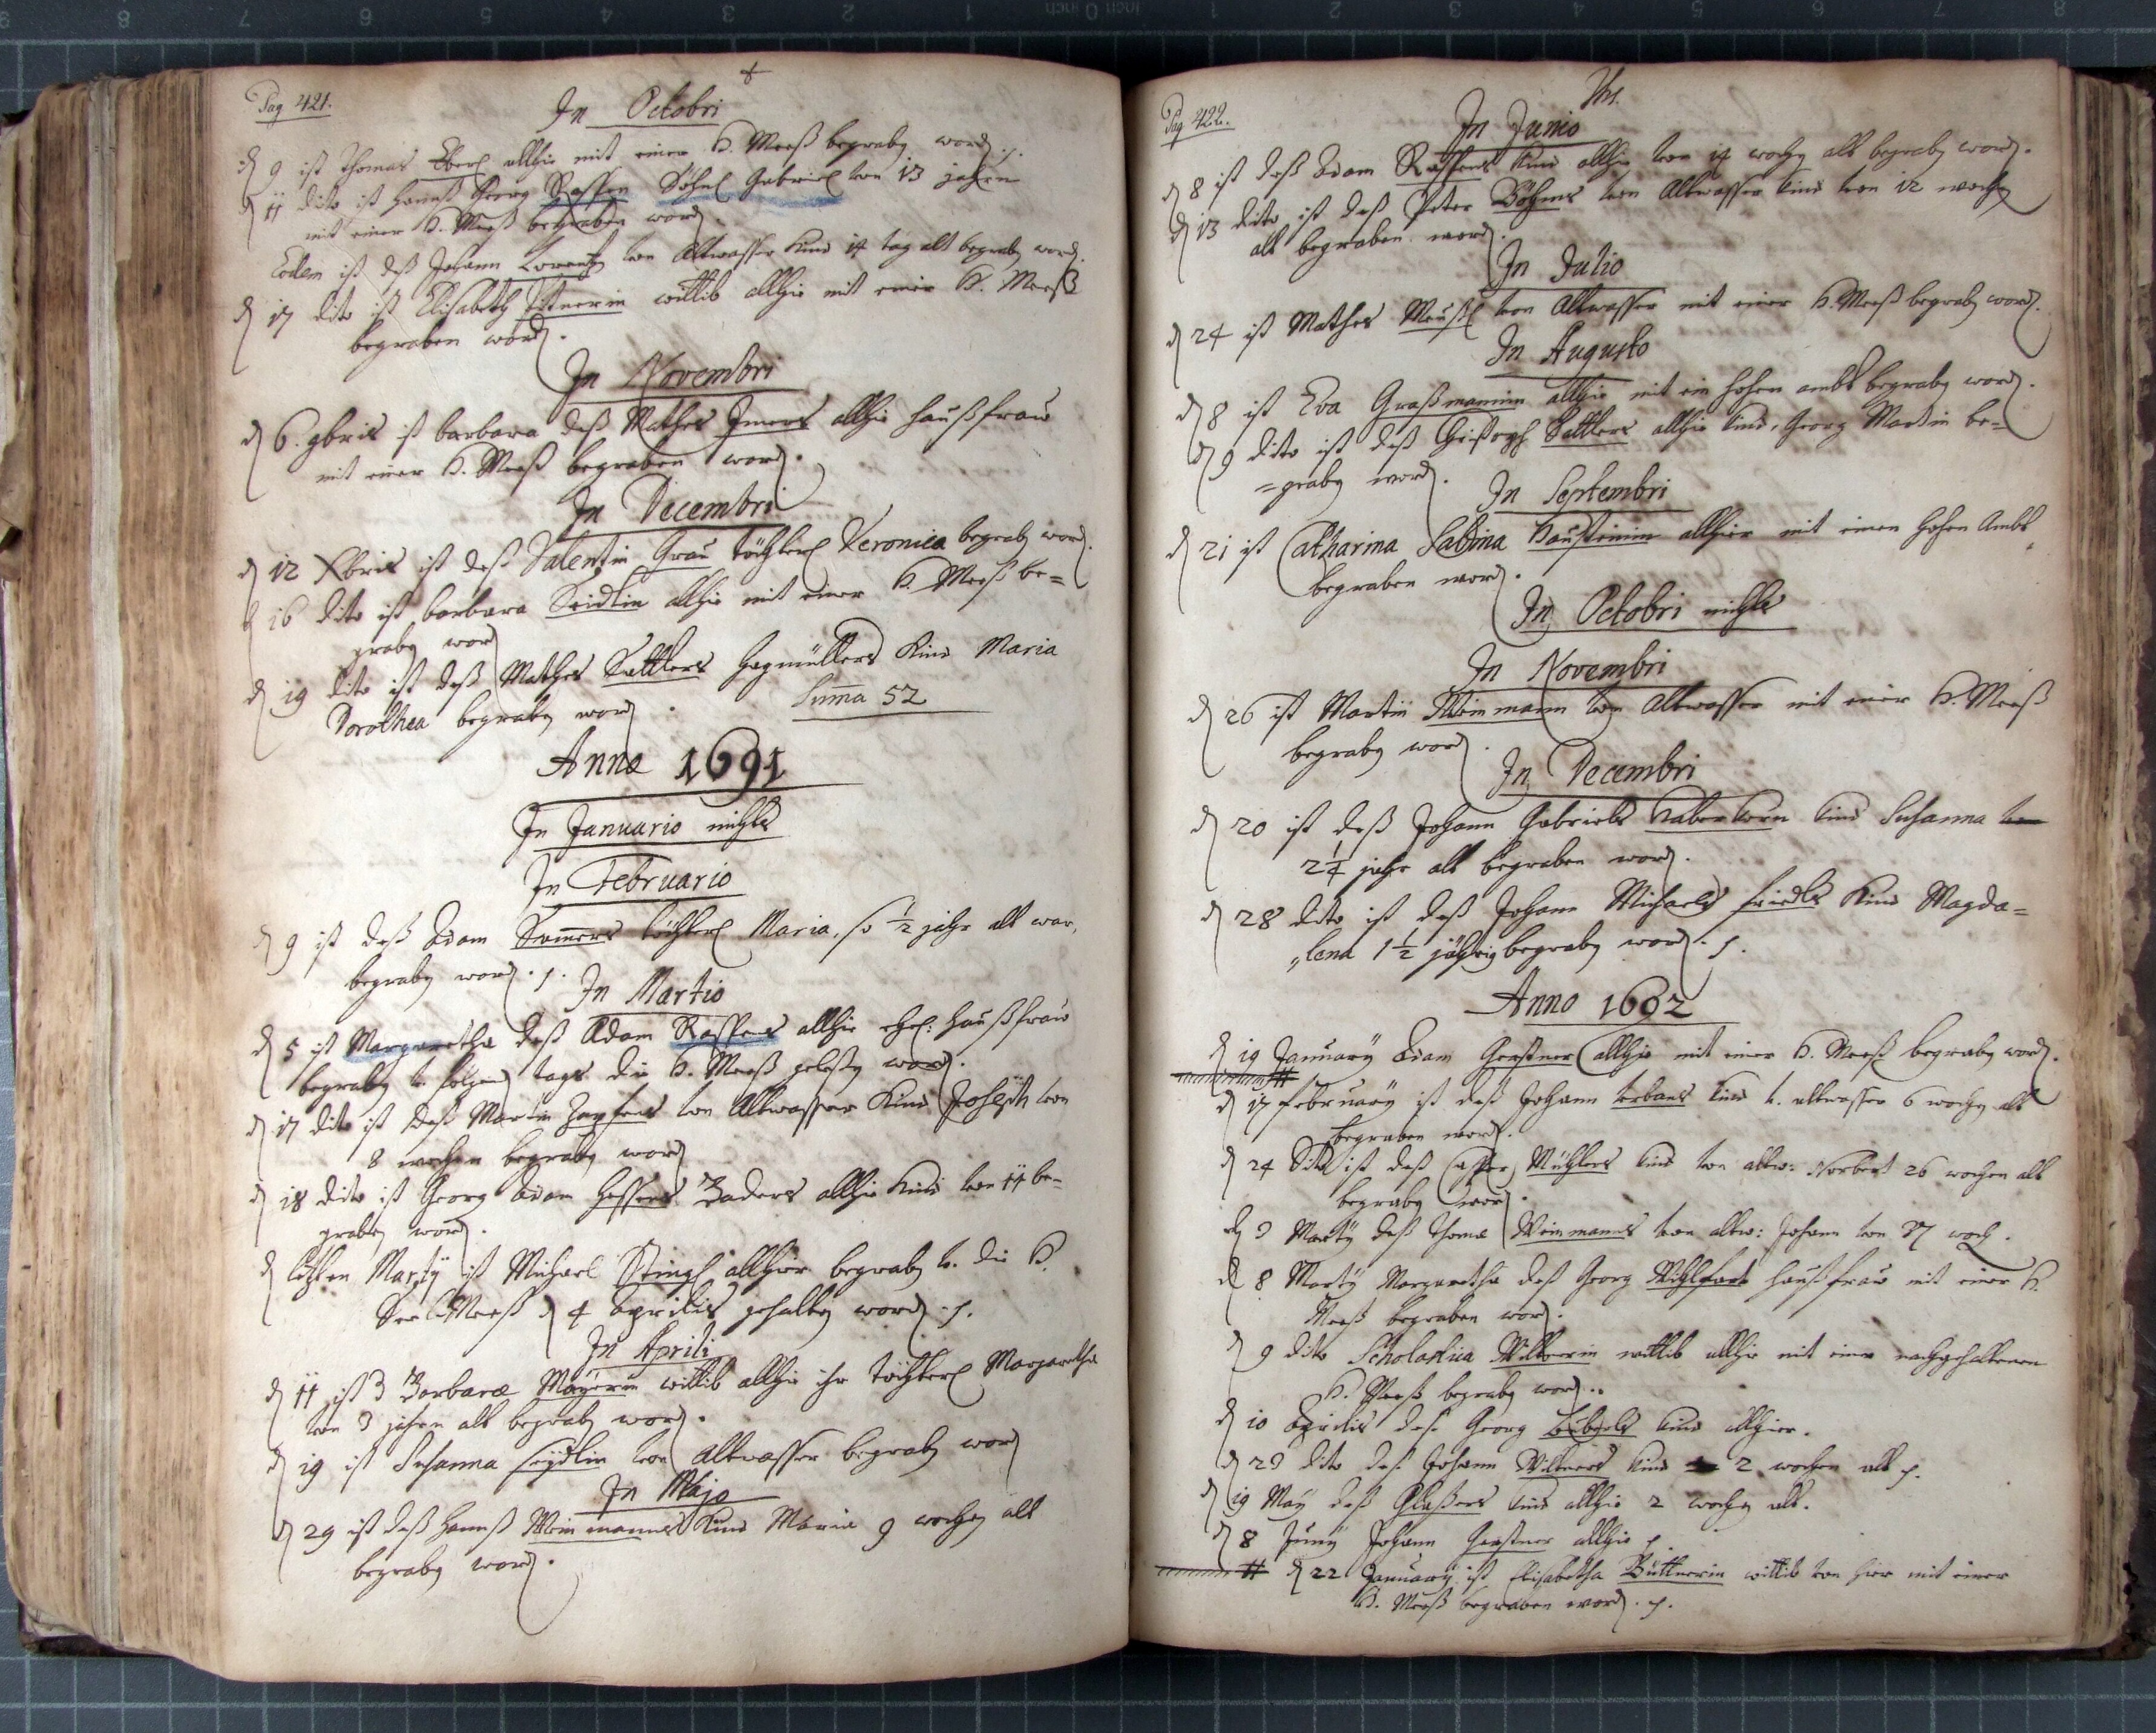 Pag 421.
In Octobri
d 9 ist Thomas Eberl allhie mit einer H. Meeß begrabn word.
d 11 dito ist Hannß Georg Raßen Söhnl Gabriel von 13 jahren
mit einer H. Meeß begraben word.
Eodem ist deß Johann Lorentz von Altwasser Kind 14 tag alt begrabn word.
d 17 dito ist Elisabeth wittib allhie mit einer H. Meeß
begraben word.
In Novembri
d 6. 9bris ist barbara deß Mathes allhie haußfraw
mit einer H. Meeß begraben word.
In Decembri
d 12 Xbris ist deß Valentin Grau töchterl Veronica begrabn word.
d 16 dito ist barbara Seidlin allhie mit einer H. Meeß be=
grabn word
d 19 dito ist deß Mathes Sattlers Kind Maria
Dorothea begrabn word.
Summa 52
Anno 1691
In Januario nichts
In Februario
d 9 ist deß Adam töchterl Maria, so ½ jahr alt war,
begrabn word.
In Martio
d 5 ist Margaretha deß Adam Raßens allhie ehel: haußfraw
begrabn v. folgend tags die H. Meeß word.
d 17 dito ist deß Martin Zapfens von Altwasser Kind Joseph von
8 wochen begrabn word
d 18 dito ist Georg Adam Baders allhie Kind von 11 be=
grabn word.
d letzten Marty ist Michael Stingl allhier begrabn v. die H.
Seel Meeß d 4 Aprilis gehalten word.
In Aprili
d 11 ist Barbara Mayerin wittib allhie ihr töchterl Margaretha
von 3 jahren alt begrabn word.
d 19 ist Susanna Seydlin von Altwasser begrabn word
In Majo
d 29 ist deß Hannß Weinmanns Kind Maria 9 wochen alt
begrabn word.
Pag 422.
In Junio
d 8 ist deß Adam Raßens Kind allhie von 14 wochn alt begrabn word.
d 13 dito ist deß Peter Böhms von Altwasser Kind von 12 wochen
alt begraben word.
In Julio
d 24 ist Mathes von Altwasser mit einer H. Meeß begrabn word.
In Augusto
d 8 ist Eva Graßmannin allhie mit ein hohen ambt begrabn word.
d 9 dito ist deß Christoph Sattlers allhie Kind, Georg Martin be=
=grabn word.
In Septembri
d 21 ist Catharina Sabina allhier mit einen hohen Ambt
begraben word.
In Octobri nichts
In Novembri
d 26 ist Martin Weinmann von Altwasser mit einer H. Meeß
begrabn word.
In Decembri
d 20 ist deß Johann Gabriels Haberkorn Kind Susanna
2¼ jahr alt begraben word.
d 28 dito ist deß Johann Michaels friedls Kind Magda=
„lena 1½ jährig begrabn word.
Anno 1692
d 19 January Adam Gerstner allhie mit einer H. Meeß begrabn word.
d 17 february ist deß Johann Urbans Kind v. altwasser 6 wochn alt
begraben word.
d 24 dito ist deß Casper Kind von altw: Norbert 26 wochen alt
begrabn word.
d 3 Marty deß Thoma Weinmanns von altw: Johann von 17 woch.
d 8 Marty Margaretha deß Georg haußfraw mit einer H.
Meeß begraben word.
d 9 dito Scholastica wittib allhie mit einer nachgehaltenen
H. Meeß begrabn word.
d 10 Aprilis deß Georg Kind allhier.
d 29 dito deß Johann Kind 2 wochen alt
d 19 May deß Glaßers Kind allhie 2 wochn alt.
d 8 Juny Johann Gerstner allhie
# d 22 January ist Elisabetha Büttnerin wittib von hier mit einer
H. Meeß begraben word.